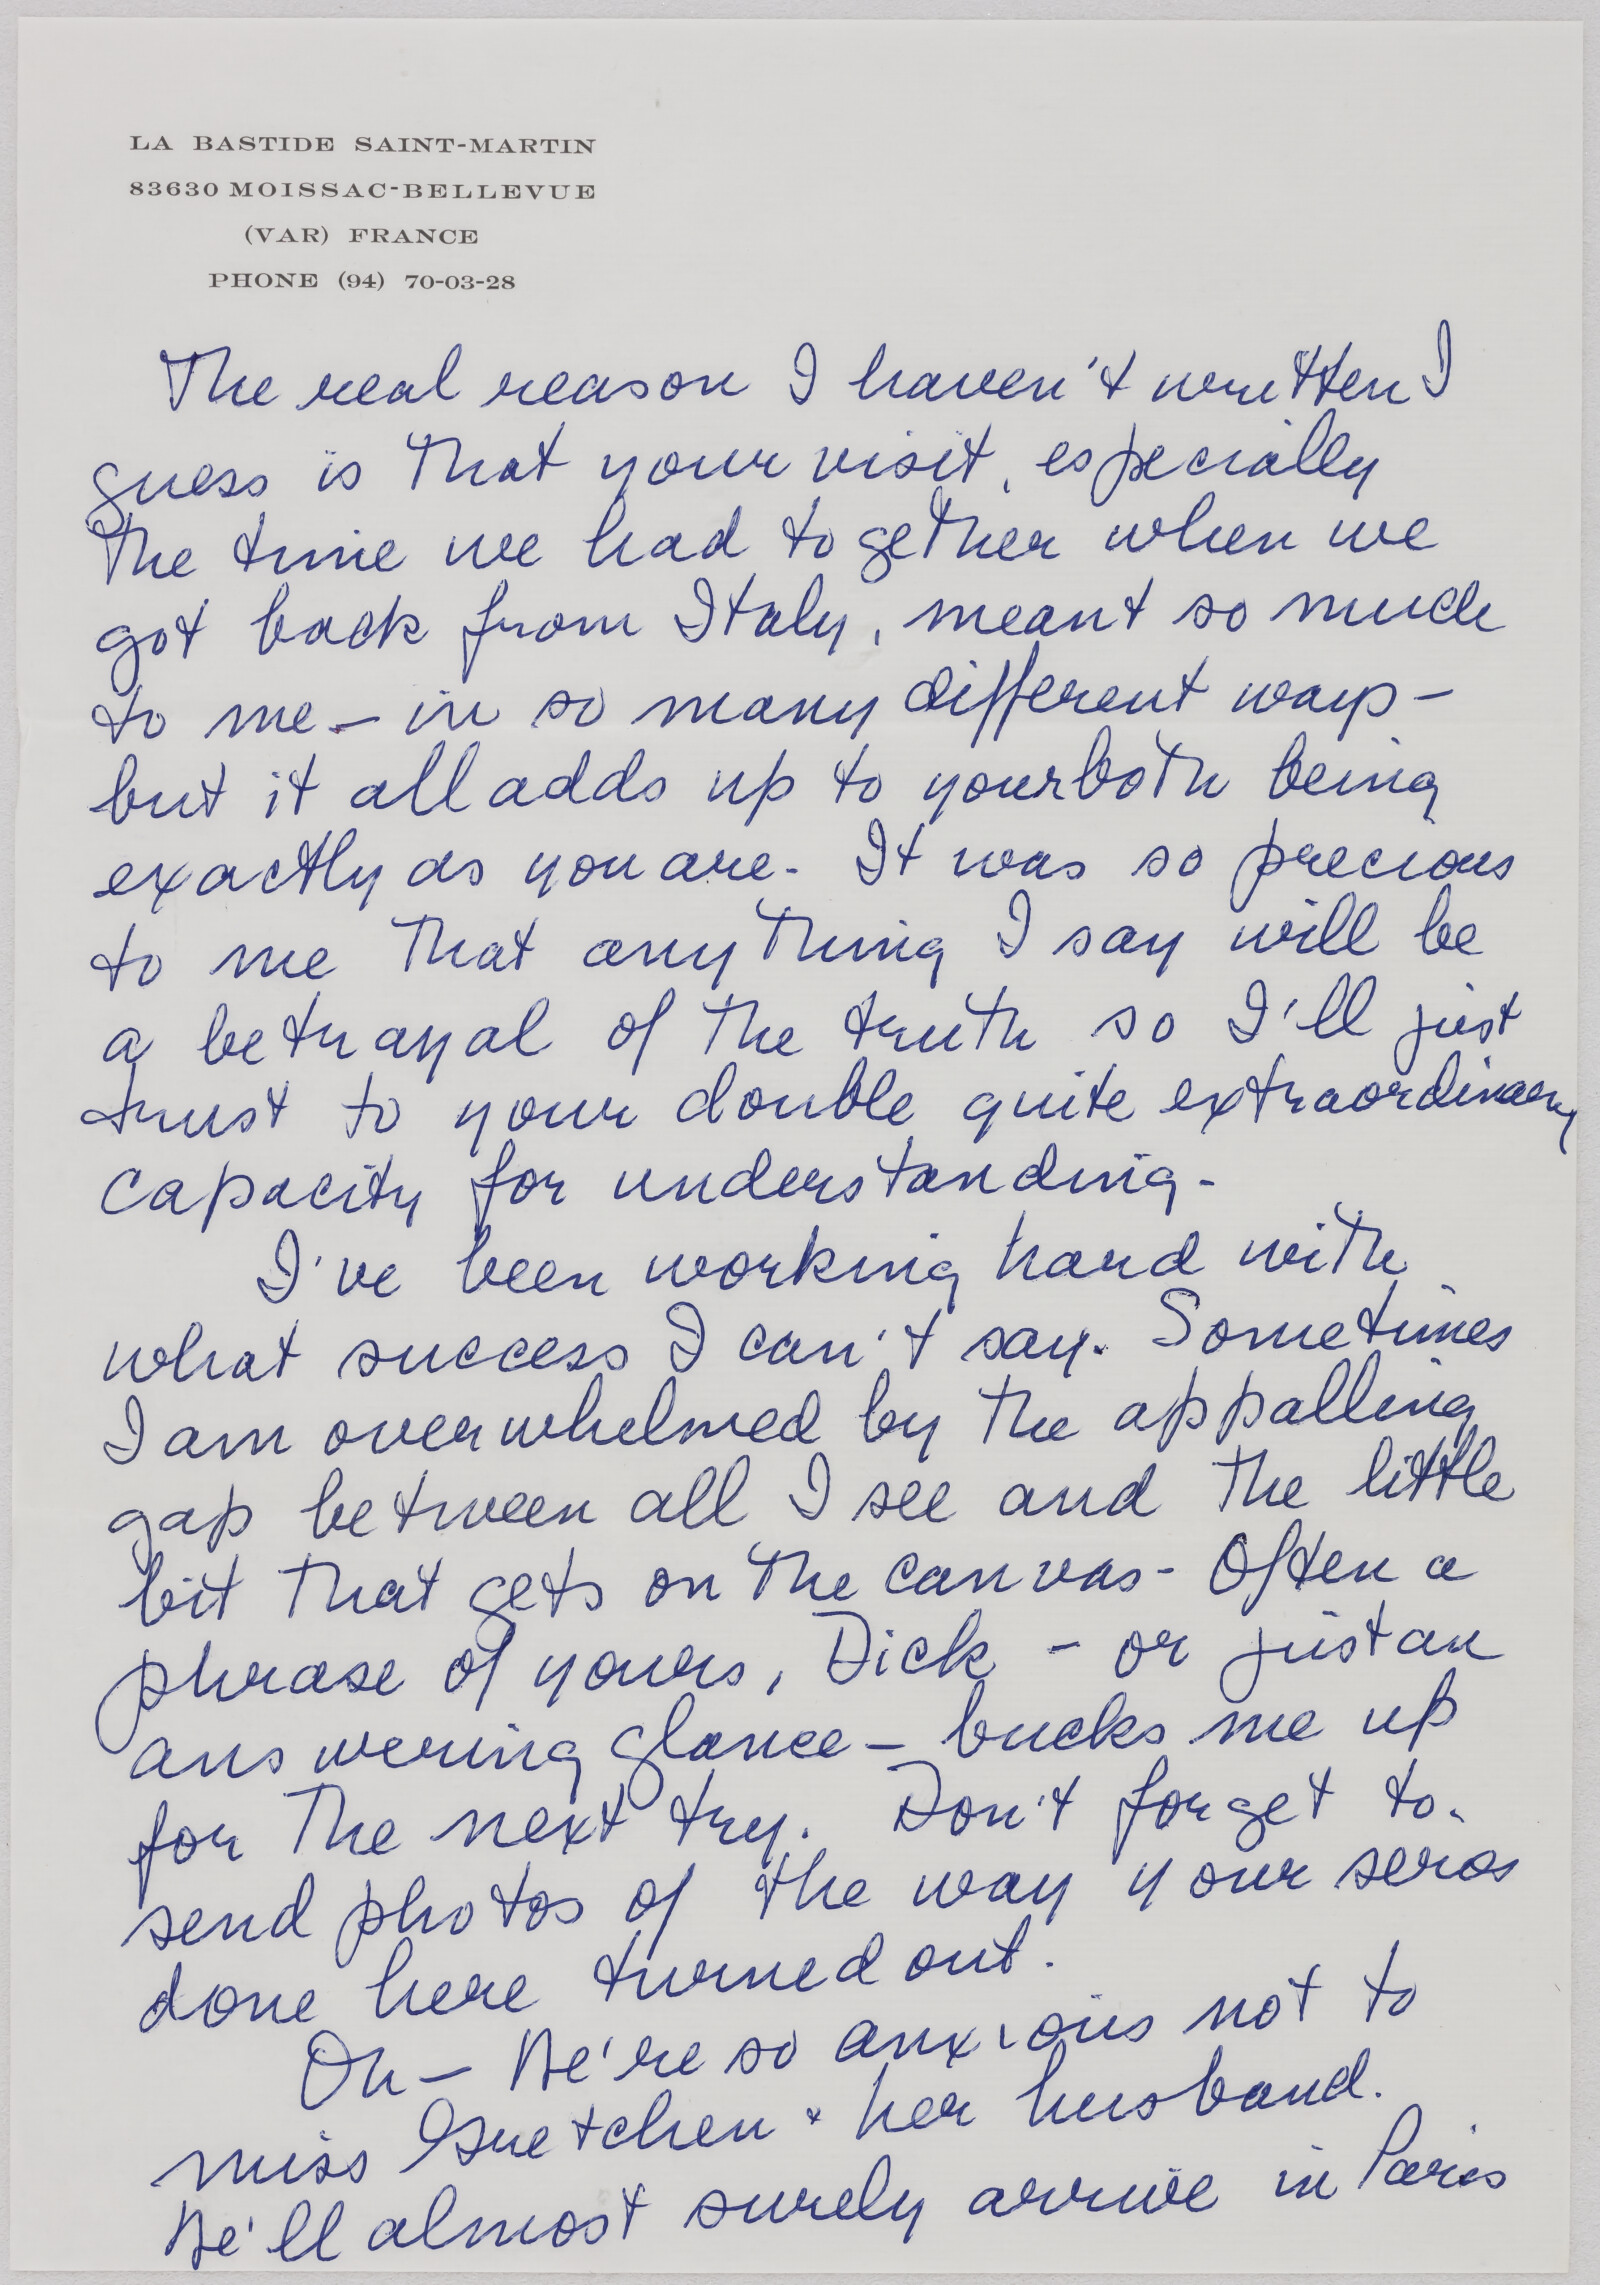 LA BASTIDE SAINT-MARTIN
83630 MOISSAC-BELLEVUE
(VAR) FRANCE
PHONE (94) 70-03-28
The real reason I haven't written I
guess is that your visit, especially
the time we had together when we
got back from Italy, meant so much
to me – in so many different ways –
but it all adds up to your both being
exactly as you are. It was so precious
to me that anything I say will be
a betrayal of the truth so I'll just
trust to your double quite extraordinary
capacity for understanding.
I've been working hard with
what success I can't say. Sometimes
I am overwhelmed by the appalling
gap between all I see and the little
bit that gets on the canvas - Often a
phrase of yours, Dick – or just an
answering glance – bucks me up
for the next try. Don't forget to
send photos of the way your
done here turned out.
Oh – We're so anxious not to
miss Gretchen & her husband.
We'll almost surely arrive in Paris